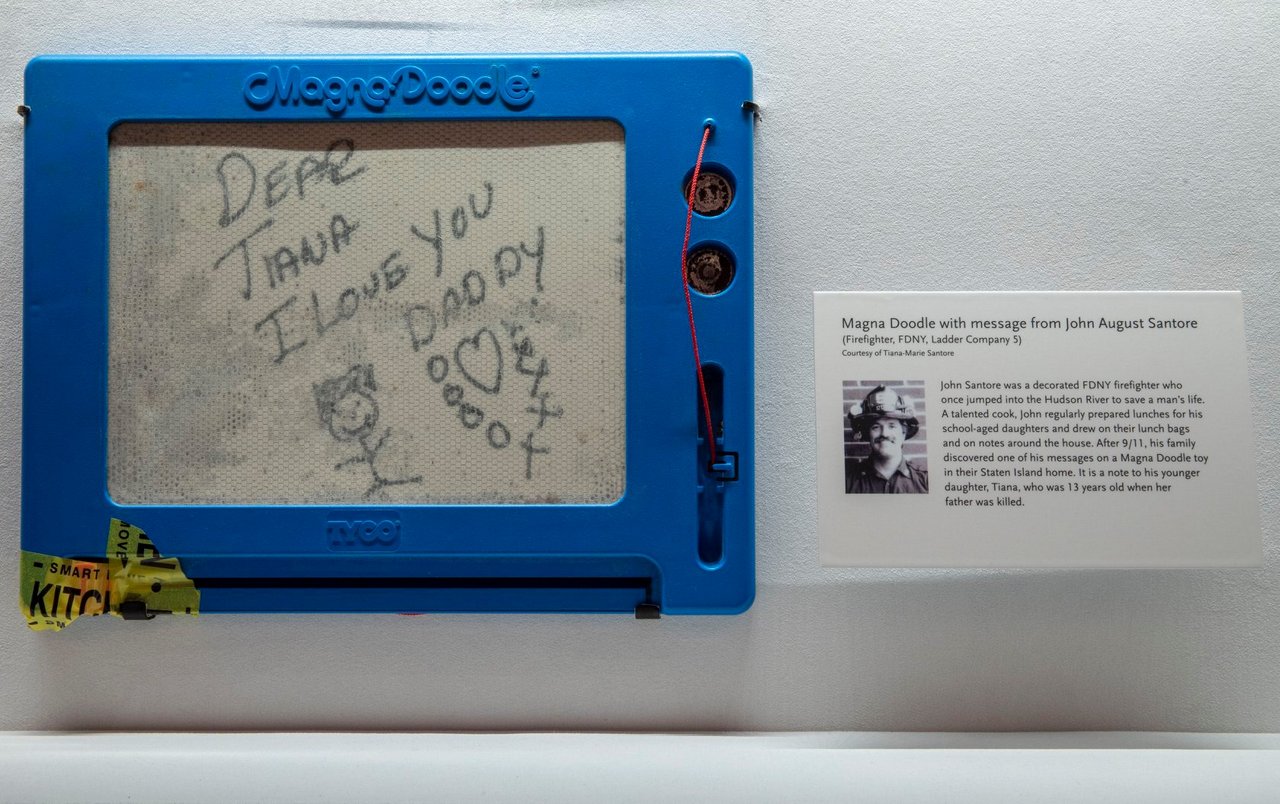 Magna Doodle
DEAR
TIANA
I LOVE YOU
DADDY
TYCO
MOVE
SMART
KITCH
Magna Doodle with message from John August Santore
(Firefighter, FDNY, Ladder Company 5)
Courtesy of Tiana-Marie Santore
John Santore was a decorated FDNY firefighter who
once jumped into the Hudson River to save a man's life.
A talented cook, John regularly prepared lunches for his
school-aged daughters and drew on their lunch bags
and on notes around the house. After 9/11, his family
discovered one of his messages on a Magna Doodle toy
in their Staten Island home. It is a note to his younger
daughter, Tiana, who was 13 years old when her
father was killed.